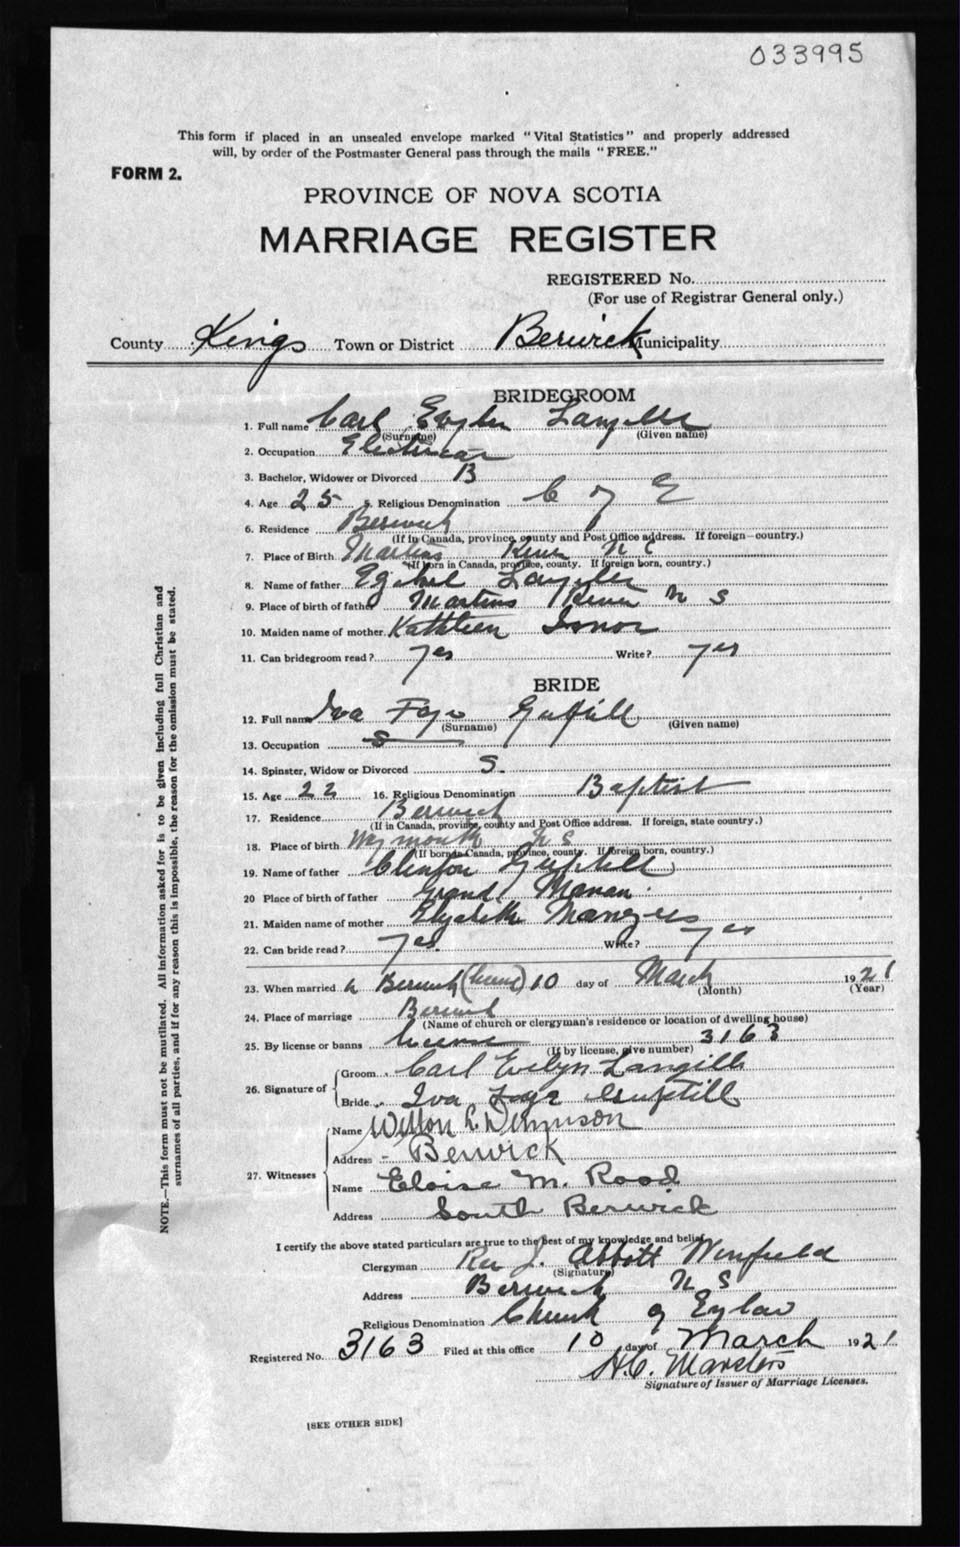 033995
This form if placed in an unsealed envelope marked "Vital Statistics" and properly addressed
will, by order of the Postmaster General pass through the mails "FREE."
FORM 2.
PROVINCE OF NOVA SCOTIA
MARRIAGE REGISTER
REGISTERED No.
(For use of Registrar General only.)
County Kings Town or District Berwick Municipality
BRIDEGROOM
1. Full name Carl Langille
(Surname) (Given name)
2. Occupation Electrician
3. Bachelor, Widower or Divorced B
4. Age 25 5. Religious Denomination C of E
6. Residence Berwick
(If in Canada, province, county and Post Office address. If foreign—country.)
7. Place of Birth Martins River
(If born in Canada, province, county. If foreign born, country.)
8. Name of father Langille
9. Place of birth of father Martins River N S
10. Maiden name of mother Kathleen
11. Can bridegroom read? yes Write? yes
BRIDE
12. Full name Iva Faye Guptill
(Surname) (Given name)
13. Occupation
14. Spinster, Widow or Divorced S.
15. Age 22 16. Religious Denomination Baptist
17. Residence Berwick
(If in Canada, province, county and Post Office address. If foreign, state country.)
18. Place of birth Weymouth N S
(If born in Canada, province, county. If foreign born, country.)
19. Name of father Clinton Guptill
20 Place of birth of father Grand Manan
21. Maiden name of mother Elizabeth
22. Can bride read? yes. Write? yes
23. When married Berwick 10 day of March 1921
(Month) (Year)
24. Place of marriage Berwick
(Name of church or clergyman's residence or location of dwelling house)
25. By license or banns license 3163
(If by license, give number)
26. Signature of
Groom Carl Evelyn Langille
Bride Iva Faye Guptill
27. Witnesses
Name L. Dennison
Address Berwick
Name Eloise M. Rood
Address South Berwick
I certify the above stated particulars are true to the best of my knowledge and belief.
Clergyman Rev J. Abbott Winfield
(Signature)
Address Berwick N S
Religious Denomination Church of England
Registered No. 3163 Filed at this office 10 day of March 1921
H.C. Marsters
Signature of Issuer of Marriage Licenses.
[SEE OTHER SIDE]
NOTE.—This form must not be mutilated. All information asked for is to be given including full Christian and
surnames of all parties, and if for any reason this is impossible, the reason for the omission must be stated.